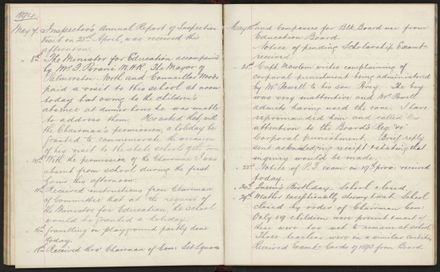 1894
May 7. Inspector's Annual Report of Inspection
Visit on 23rd April, was received this
afternoon.
8th The Minister for Education accompanied
by Mr. Pirani M.H.R. The Mayor of
Palmerston North and Councillor Wood
paid a visit to this school at noon
today but owing to the children's
absence at dinner time was unable
to address them. He asked that with
the Chairman's permission, a holiday be
granted to commemorate the occasion
of his visit to the state school
10th With the permission of the Chairman I was
absent from school during the first
hour this afternoon.
11th Received instructions from Chairman
of Committee that at the request of
the Minister for Education, the School
would be granted a holiday.
14th Gravelling on playground partly done
today.
Received from Chairman of Com: Set Square
and Compasses for Blk Board use from
Education Board.
Notice of pending Scholarship Exams
received.
21st Capt. Newton writes complaining of
corporal punishment being administered
by Mr. Jewell to his son Harry. The boy
was very inattentive and Mr. Jewell
admits having used the cane. I have
reprimanded him and called his
attention to the Board's Reg. re
Corporal Punishment. Brief reply
sent acknowledging receipt & stating that
inquiry would be made.
22nd Visit of P.T. exam on 19th prox. received
today.
24th Queen's Birthday. School closed
29th Weather exceptionally stormy & wet. School
closed by order of Chairman Com:
Only 29 children were present most of
these were too wet to remain at school
Those teachers were in a similar condition
Received Exam: Cards of 1893 from Board